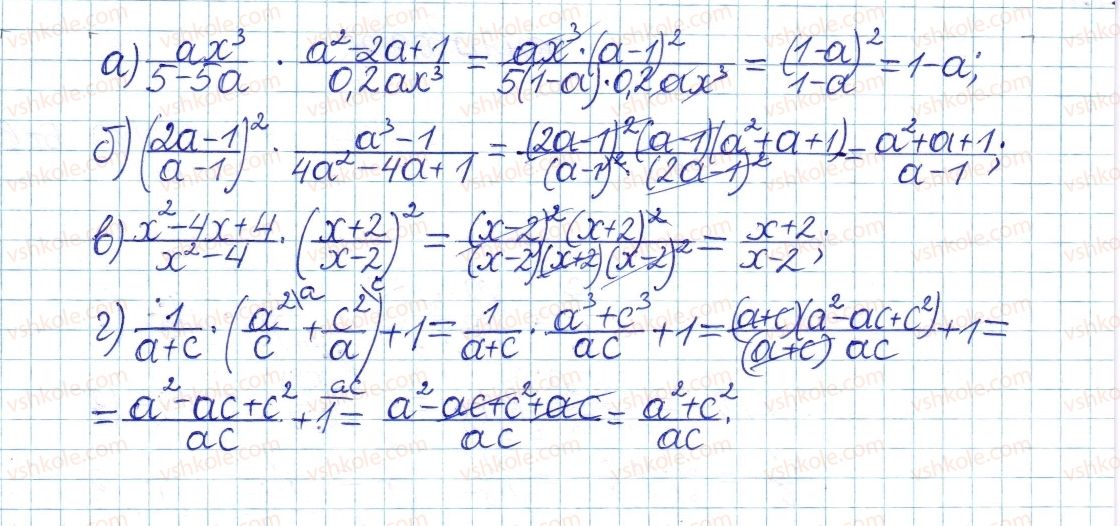 а) ax³/(5-5a) · (a²-2a+1)/(0,2ax³) = (ax³·(a-1)²)/(5(1-a)·0,2ax³) = (1-a)²/(1-a) = 1-a;
б) ((2a-1)/(a-1))² · (a³-1)/(4a²-4a+1) = ((2a-1)²(a-1)(a²+a+1))/((a-1)²·(2a-1)²) = (a²+a+1)/(a-1);
в) (x²-4x+4)/(x²-4) · ((x+2)/(x-2))² = ((x-2)²(x+2)²)/((x-2)(x+2)(x-2)²) = (x+2)/(x-2);
г) 1/(a+c) · (a²\a/c + c²\c/a) + 1 = 1/(a+c) · (a³+c³)/(ac) + 1 = ((a+c)(a²-ac+c²))/((a+c)ac) + 1 =
= (a²-ac+c²)/(ac) + 1\ac = (a²-ac+c²+ac)/(ac) = (a²+c²)/(ac).
vshkole.com